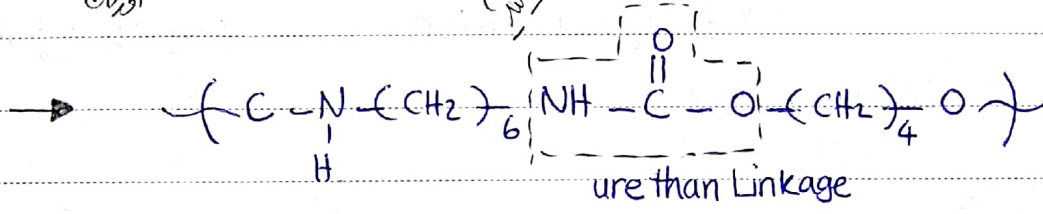 O
||
-( C - N -( CH2 )-6 NH - C - O -( CH2 )-4 O -)-
H
urethan Linkage